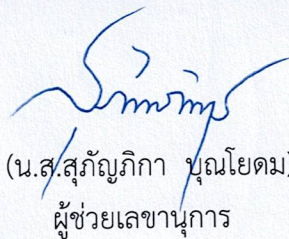 (น.ส.สุภัญภิกา บุณโยดม)
ผู้ช่วยเลขานุการ